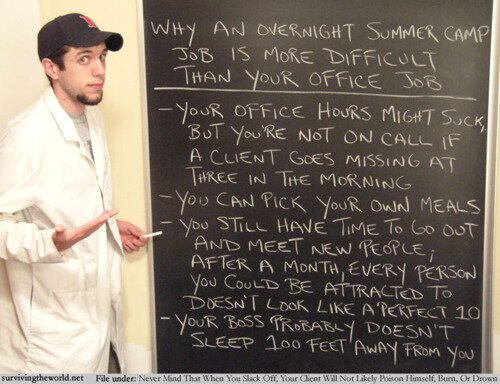 WHY AN OVERNIGHT SUMMER CAMP
JOB IS MORE DIFFICULT
THAN YOUR OFFICE JOB
- YOUR OFFICE HOURS MIGHT SUCK,
BUT YOU'RE NOT ON CALL IF
A CLIENT GOES MISSING AT
THREE IN THE MORNING
- YOU CAN PICK YOUR OWN MEALS
- YOU STILL HAVE TIME TO GO OUT
AND MEET NEW PEOPLE;
AFTER A MONTH, EVERY PERSON
YOU COULD BE ATTRACTED TO
DOESN'T LOOK LIKE A PERFECT 10
- YOUR BOSS PROBABLY DOESN'T
SLEEP 100 FEET AWAY FROM YOU
survivingtheworld.net File under: Never Mind That When You Slack Off, Your Client Will Not Likely Poison Himself, Burn, Or Drown